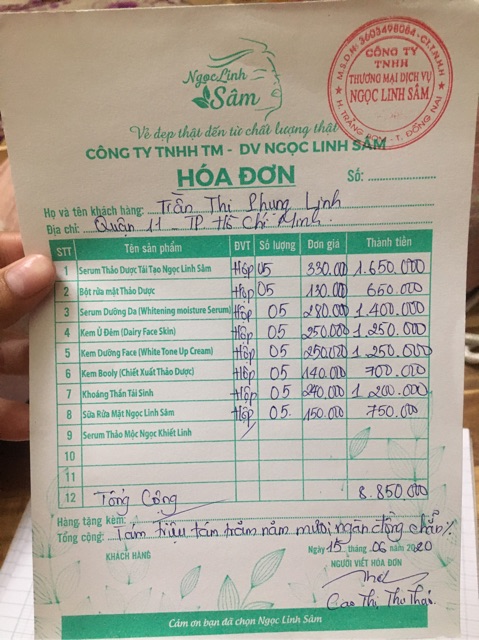 Ngọc Linh
Sâm
M.S.D.N: 3603498084 - C.T.T.N.H.H
CÔNG TY
TNHH
THƯƠNG MẠI DỊCH VỤ
NGỌC LINH SÂM
H. TRẢNG BOM - T. ĐỒNG NAI
Vẻ đẹp thật đến từ chất lượng thật
CÔNG TY TNHH TM - DV NGỌC LINH SÂM
HÓA ĐƠN
Số:
Họ và tên khách hàng: Trần Thị Phụng Linh
Địa chỉ: Quận 11 - TP Hồ Chí Minh.
STT Tên sản phẩm ĐVT Số lượng Đơn giá Thành tiền
1 Serum Thảo Dược Tái Tạo Ngọc Linh Sâm Hộp 05 330.000 1.650.000
2 Bột rửa mặt Thảo Dược Hộp 05 130.000 650.000
3 Serum Dưỡng Da (Whitening moisture Serum) Hộp 05 280.000 1.400.000
4 Kem Ủ Đêm (Dairy Face Skin) Hộp 05 250.000 1.250.000
5 Kem Dưỡng Face (White Tone Up Cream) Hộp 05 250.000 1.250.000
6 Kem Booly (Chiết Xuất Thảo Dược) Hộp 05 140.000 700.000
7 Khoáng Thần Tái Sinh Hộp 05 240.000 1.200.000
8 Sữa Rửa Mặt Ngọc Linh Sâm Hộp 05 150.000 750.000
9 Serum Thảo Mộc Ngọc Khiết Linh
10
11
12 Tổng Cộng 8.850.000
Hàng tặng kèm:
Tổng cộng: Tám triệu tám trăm năm mươi ngàn đồng chẵn/.
Ngày 15 tháng 06 năm 2020
KHÁCH HÀNG NGƯỜI VIẾT HÓA ĐƠN
Cao Thị Thu Thảo
Cảm ơn bạn đã chọn Ngọc Linh Sâm